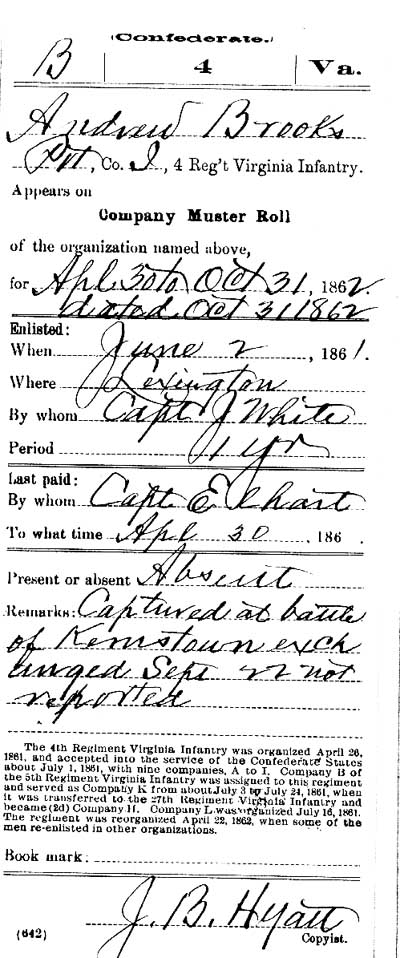 (Confederate.)
B | 4 | Va.
Andrew Brooks
Pvt, Co. I, 4 Reg't Virginia Infantry.
Appears on
Company Muster Roll
of the organization named above,
for Apl 30 to Oct 31, 1862.
dated Oct 31 1862
Enlisted:
When June 2, 1861.
Where Lexington
By whom Capt J White
Period 1 yr
Last paid:
By whom Capt E
To what time Apl 30, 186 .
Present or absent Absent
Remarks: Captured at battle
of Kernstown exch
anged Sept 22 not
reported
The 4th Regiment Virginia Infantry was organized April 26,
1861, and accepted into the service of the Confederate States
about July 1, 1861, with nine companies, A to I. Company B of
the 5th Regiment Virginia Infantry was assigned to this regiment
and served as Company K from about July 3 to July 24, 1861, when
it was transferred to the 27th Regiment Virginia Infantry and
became (2d) Company H. Company L was organized July 16, 1861.
The regiment was reorganized April 22, 1862, when some of the
men re-enlisted in other organizations.
Book mark:
J. B. Hyatt
(642) Copyist.